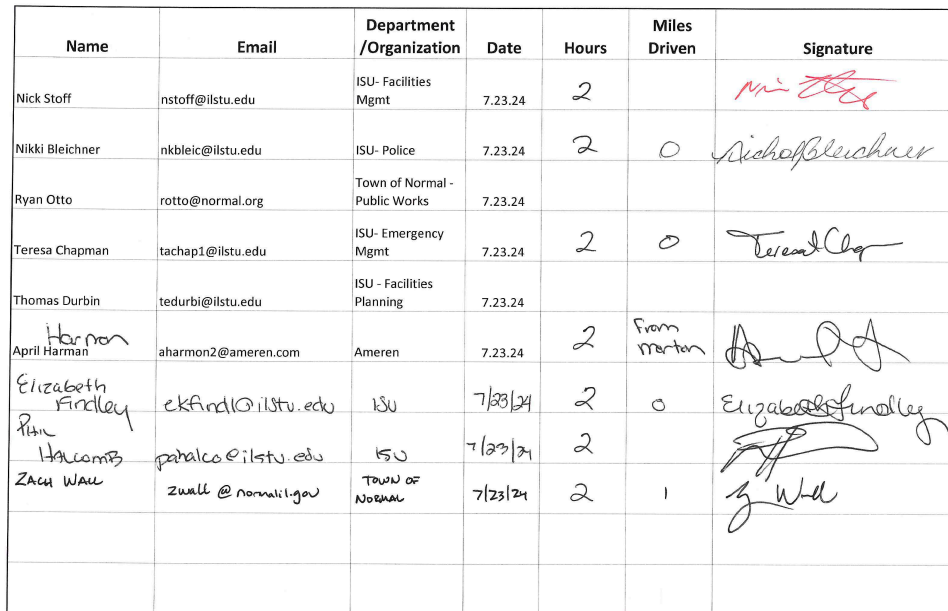 Name Email Department /Organization Date Hours Miles Driven Signature
Nick Stoff nstoff@ilstu.edu ISU- Facilities Mgmt 7.23.24 2
Nikki Bleichner nkbleic@ilstu.edu ISU- Police 7.23.24 2 0 Nichol Bleichner
Ryan Otto rotto@normal.org Town of Normal - Public Works 7.23.24
Teresa Chapman tachap1@ilstu.edu ISU- Emergency Mgmt 7.23.24 2 0 Teresa Chap
Thomas Durbin tedurbi@ilstu.edu ISU - Facilities Planning 7.23.24
Harmon
April Harman aharmon2@ameren.com Ameren 7.23.24 2 From Morton
Elizabeth Findley ekfindl@ilstu.edu ISU 7/23/24 2 0 Elizabeth Findley
Phil Halcomb pahalco@ilstu.edu ISU 7/23/24 2
ZACH WALL zwall@normalil.gov TOWN OF NORMAL 7/23/24 2 1 Wall